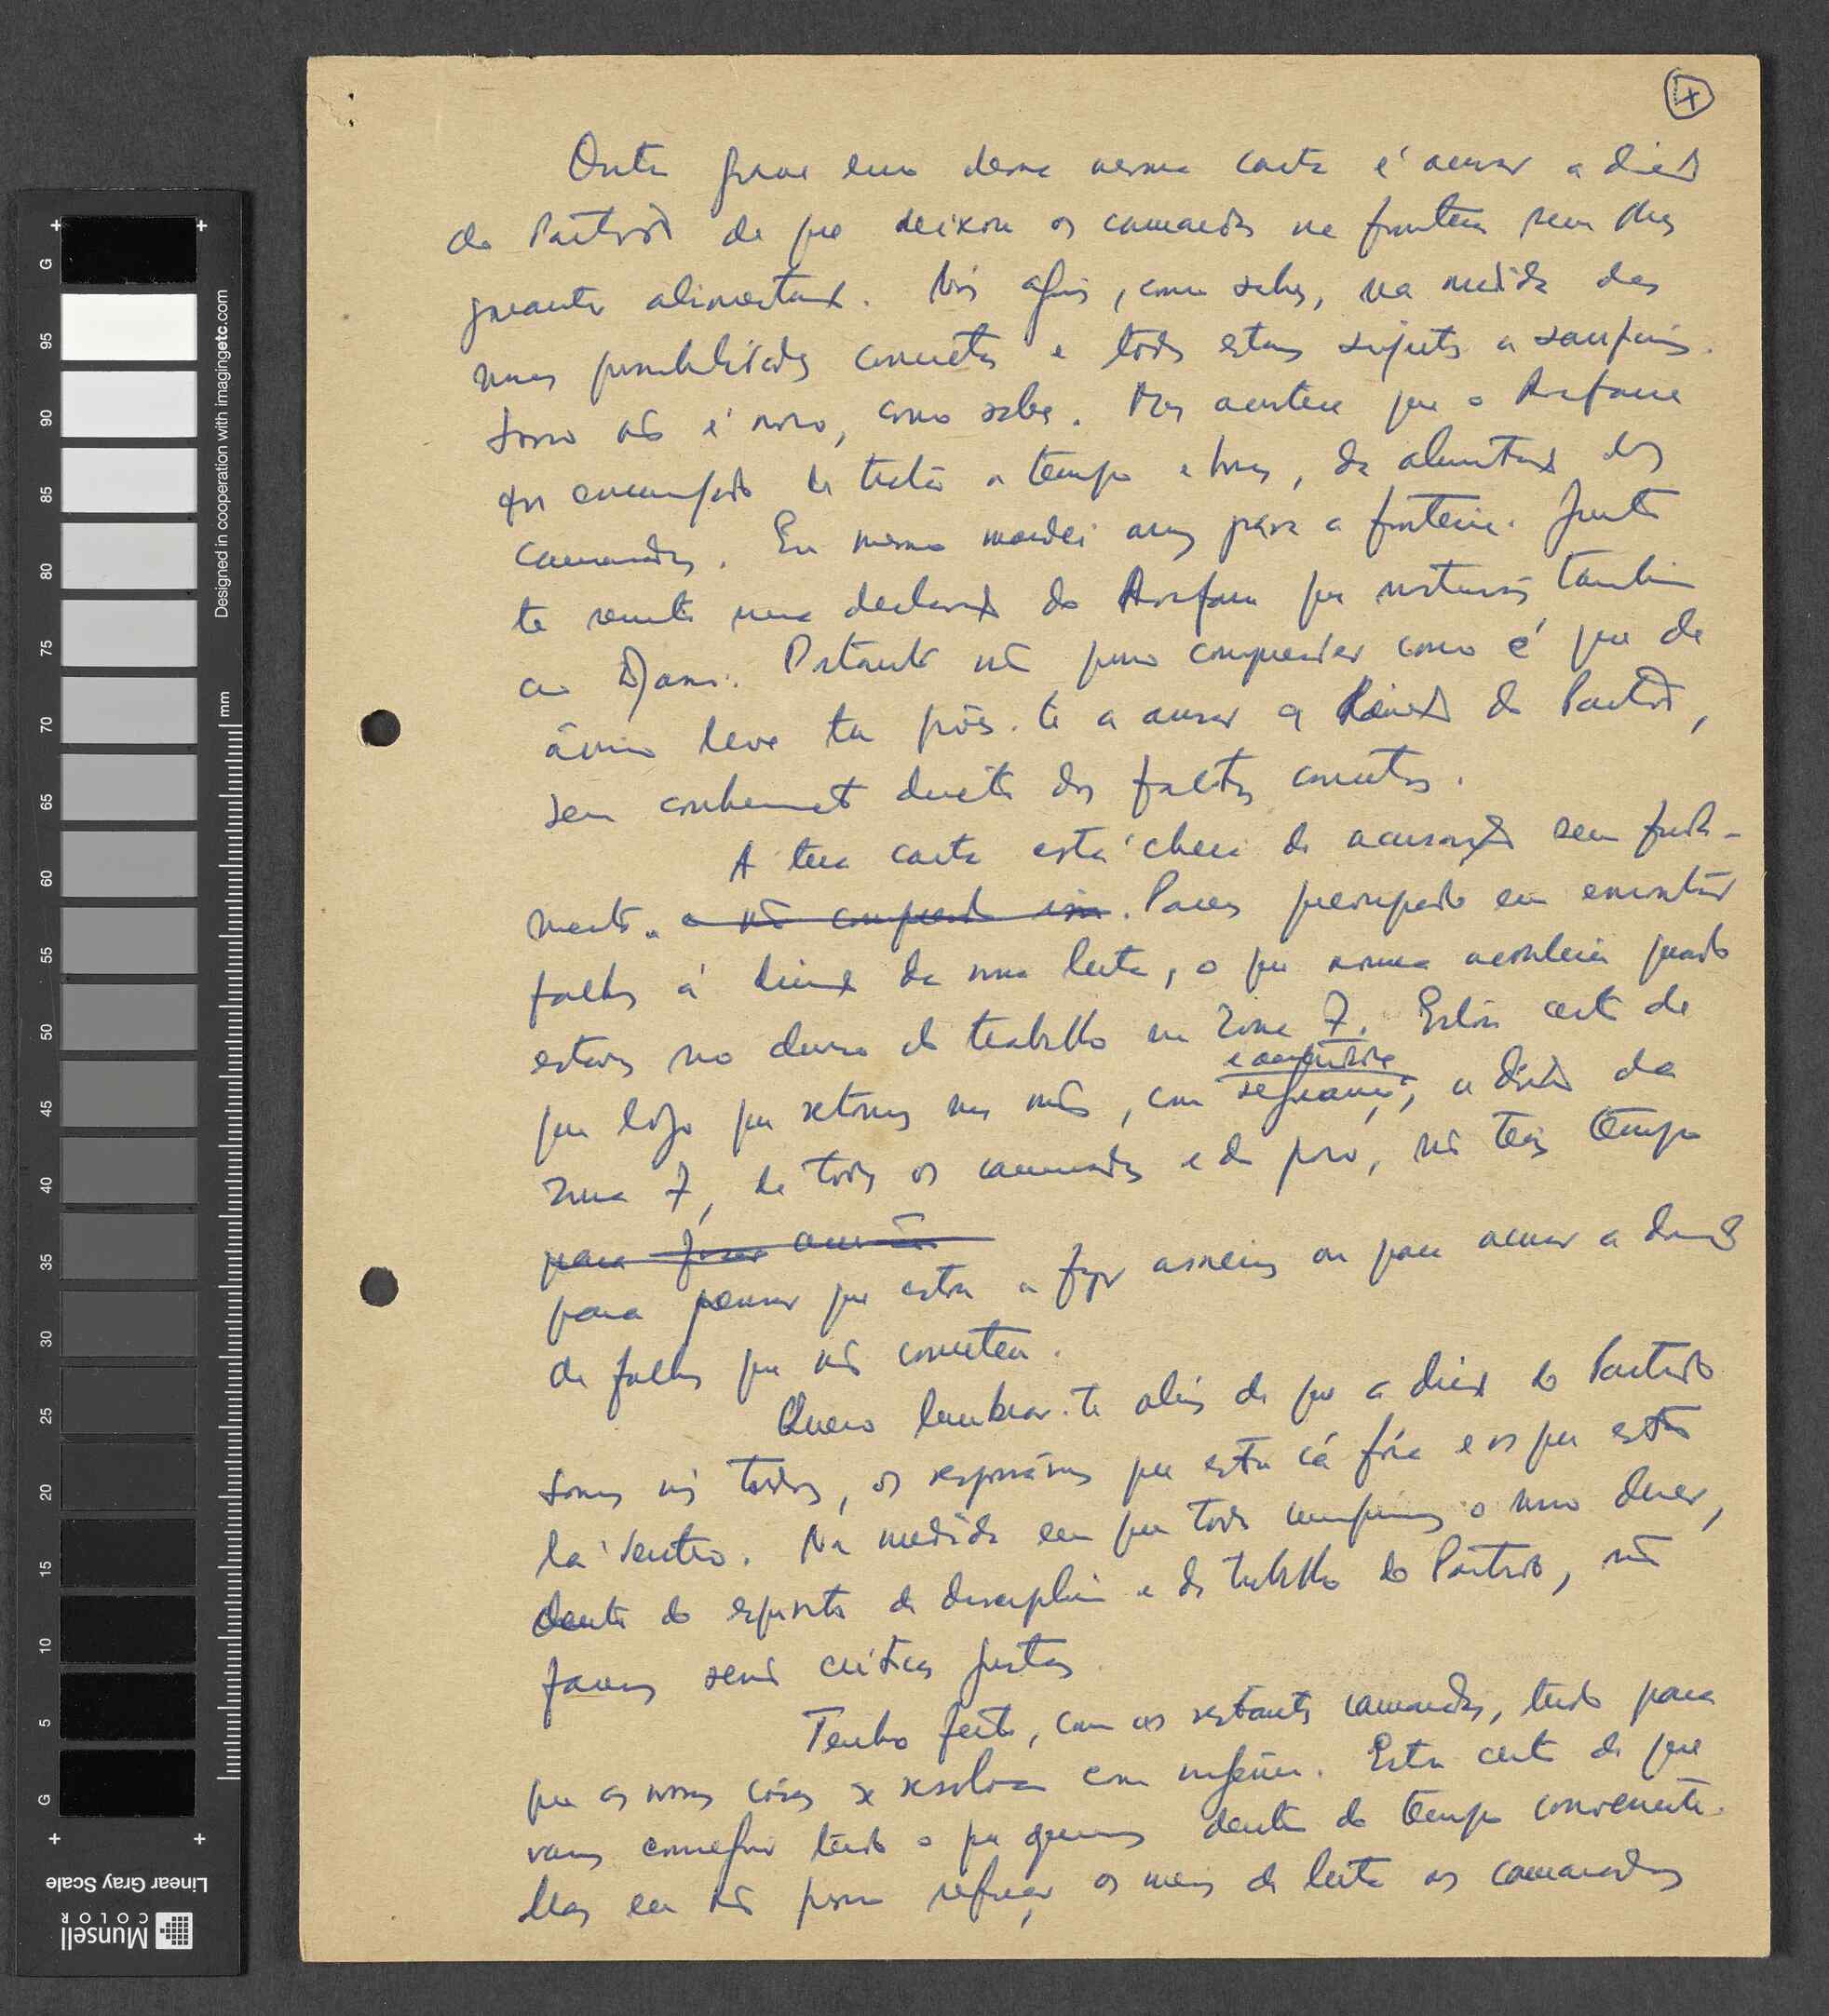 4
Outro grave erro dessa mesma carta é acusar a direcção
do Partido de que deixou os camaradas na fronteira sem lhes
garantir alimentação. Nós agimos, como sabes, na medida das
nossas possibilidades concretas e todos estamos sujeitos a sacrifícios.
Isso não é novo, como sabes. Mas acontece que o
foi encarregado de tratar a tempo e horas, da alimentação dos
camaradas. Eu mesmo mandei arroz para a fronteira. Junto
te remeto uma declaração do que mostrarás também
ao Djassi. Portanto não posso compreender como é que de
ânimo leve tu pões-te a acusar a Direcção do Partido,
sem conhecimento directo dos factos concretos.
A tua carta está cheia de acusações sem funda-
mento. e não compreendo isso. Pareces preocupado em encontrar
falhas à direcção da nossa luta, o que nunca acontecia quando
estavas no duro do trabalho na Zona 7. Estou certo de
que logo que retomes nas mãos, com segurança e a direcção da
Zona 7, de todos os camaradas e do povo, não terás tempo
para
para pensar que estou a fazer asneiras ou para acusar a direcção
de falhas que não cometeu.
Quero lembrar-te aliás de que a direcção do Partido
somos nós todos, os responsáveis que estão cá fora e os que estão
lá dentro. Na medida em que todos cumprimos o nosso dever,
dentro do espírito de disciplina e de trabalho do Partido, não
faremos senão críticas justas.
Tenho feito, com os restantes camaradas, tudo para
que as nossas coisas se resolvam com urgência. Estou certo de que
vamos conseguir tudo o que queremos dentro do tempo conveniente.
Mas eu não posso reforçar os meios de luta os camaradas
G 95 90 85 80 75 70 65 60 55 50 45 40 35 30 25 20 15 10 5 G
mm
Designed in cooperation with imagingetc.com
Linear Gray Scale
Munsell
COLOR